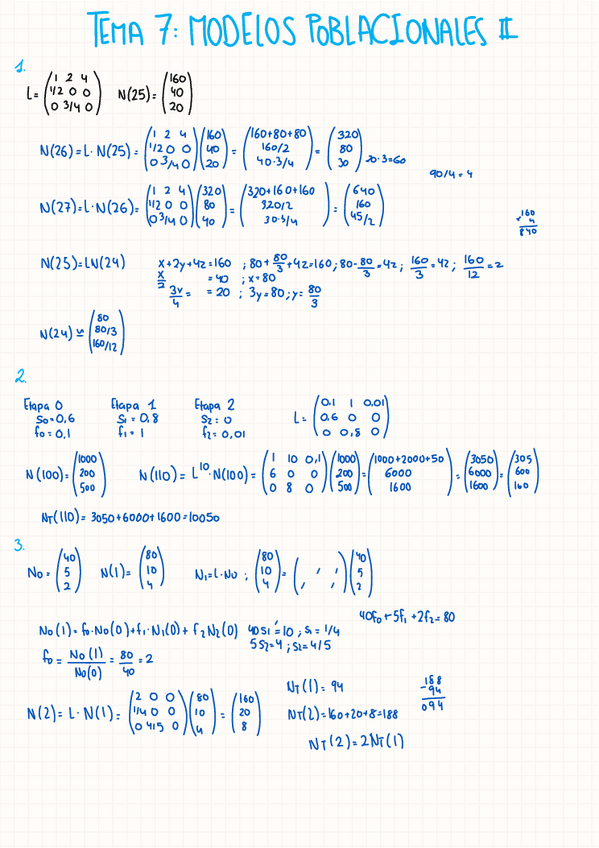 TEMA 7: MODELOS POBLACIONALES II
1.
L= (1 2 4; 1/2 0 0; 0 3/4 0) N(25)= (160; 40; 20)
N(26)=L·N(25)= (1 2 4; 1/2 0 0; 0 3/4 0) (160; 40; 20) = (160+80+80; 160/2; 40·3/4) = (320; 80; 30) 20·3=60
90/4=4
N(27)=L·N(26)= (1 2 4; 1/2 0 0; 0 3/4 0) (320; 80; 40) = (320+160+160; 320/2; 30·3/4) = (640; 160; 45/2)
160
x 4
840
N(25)=LN(24) x+2y+4z=160 ; 80+80/3+4z=160; 80-80/3=4z; 160/3=4z; 160/12=z
x/2 =40 ; x=80
3y/4= =20 ; 3y=80; y=80/3
N(24)≃ (80; 80/3; 160/12)
2.
Etapa 0 Etapa 1 Etapa 2
S0=0,6 S1=0,8 S2=0
f0=0,1 f1=1 f2=0,01
L= (0,1 1 0,01; 0,6 0 0; 0 0,8 0)
N(100)= (1000; 200; 500) N(110)= L^10·N(100)= (1 10 0,1; 6 0 0; 0 8 0) (1000; 200; 500) = (1000+2000+50; 6000; 1600) = (3050; 6000; 1600) = (305; 600; 160)
NT(110)= 3050+6000+1600=10050
3.
N0= (40; 5; 2) N(1)= (80; 10; 4) N1=L·N0 ; (80; 10; 4) = ( , , ; , , ) (40; 5; 2)
40f0+5f1+2f2=80
N0(1)=f0·N0(0)+f1·N1(0)+f2N2(0) 40S1=10 ; S1=1/4
5S2=4 ; S2=4/5
f0= N0(1)/N0(0) = 80/40 =2
N(2)= L·N(1)= (2 0 0; 1/4 0 0; 0 4/5 0) (80; 10; 4) = (160; 20; 8)
NT(1)= 94
NT(2)=160+20+8=188
188
-94
094
NT(2)=2NT(1)